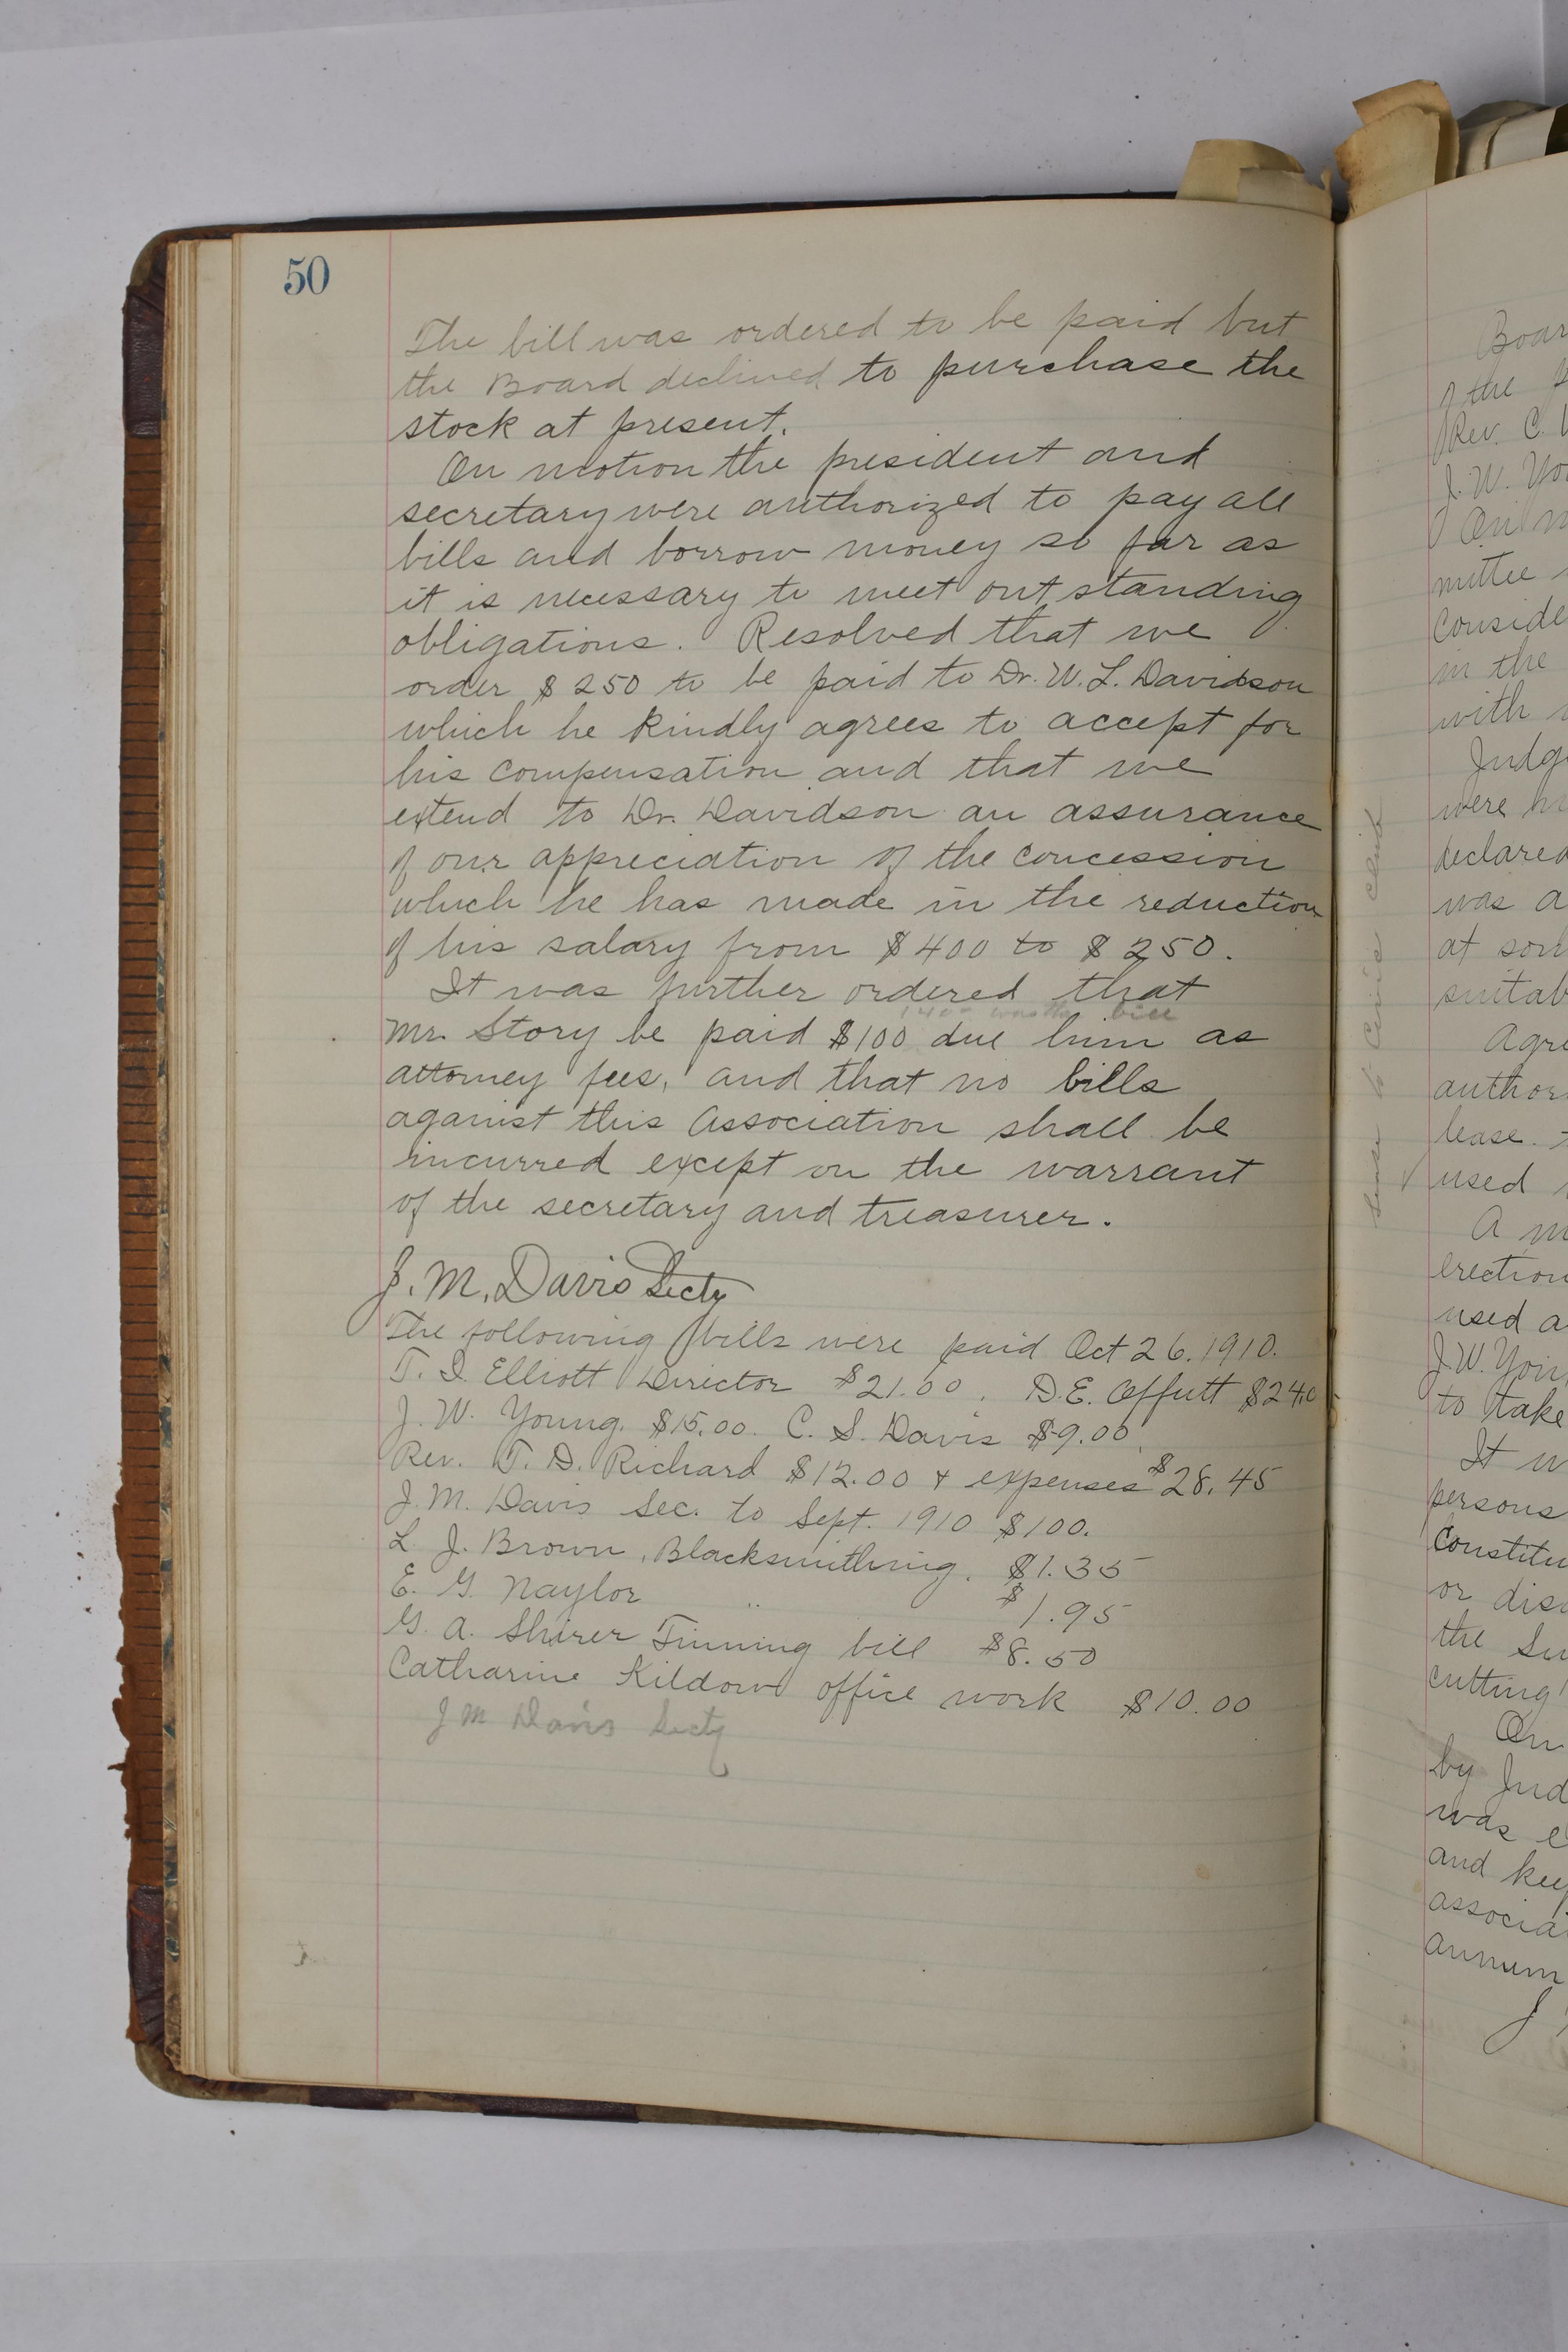 50
The bill was ordered to be paid but
the Board declined to purchase the
stock at present.
On motion the president and
secretary were authorized to pay all
bills and borrow money so far as
it is necessary to meet outstanding
obligations. Resolved that we
order $250 to be paid to Dr. W. L. Davidson
which he kindly agrees to accept for
his compensation and that we
extend to Dr. Davidson an assurance
of our appreciation of the concession
which he has made in the reduction
of his salary from $400 to $250.
It was further ordered that
was the bill
Mr. Story be paid $100 due him as
attorney fees, and that no bills
against this Association shall be
incurred except on the warrant
of the secretary and treasurer.
J. M. Davis Secty
The following bills were paid Oct 26. 1910.
T. I. Elliott Director $21.00. D. E. Offutt $24.0
J. W. Young. $15.00. C. S. Davis $9.00
Rev. T. D. Richard $12.00 & expenses $28.45
J. M. Davis Sec. to Sept. 1910 $100.
L. J. Brown, Blacksmithing. $1.35
E. G. Naylor " $1.95
G. A. Shirer Tinning bill $8.50
Catharine Kildow office work $10.00
J M Davis Secty
Boar
of the
Rev. C.
J. W. You
On m
mittee
Conside
in the
with
Judg
were
declared
was a
at som
suitab
Agre
author
lease.
used
A m
erection
used a
J. W. Youn
to take
It w
persons
Constitu
or disc
the Su
cutting
On
by Jud
was e
and kee
associa
annum
J